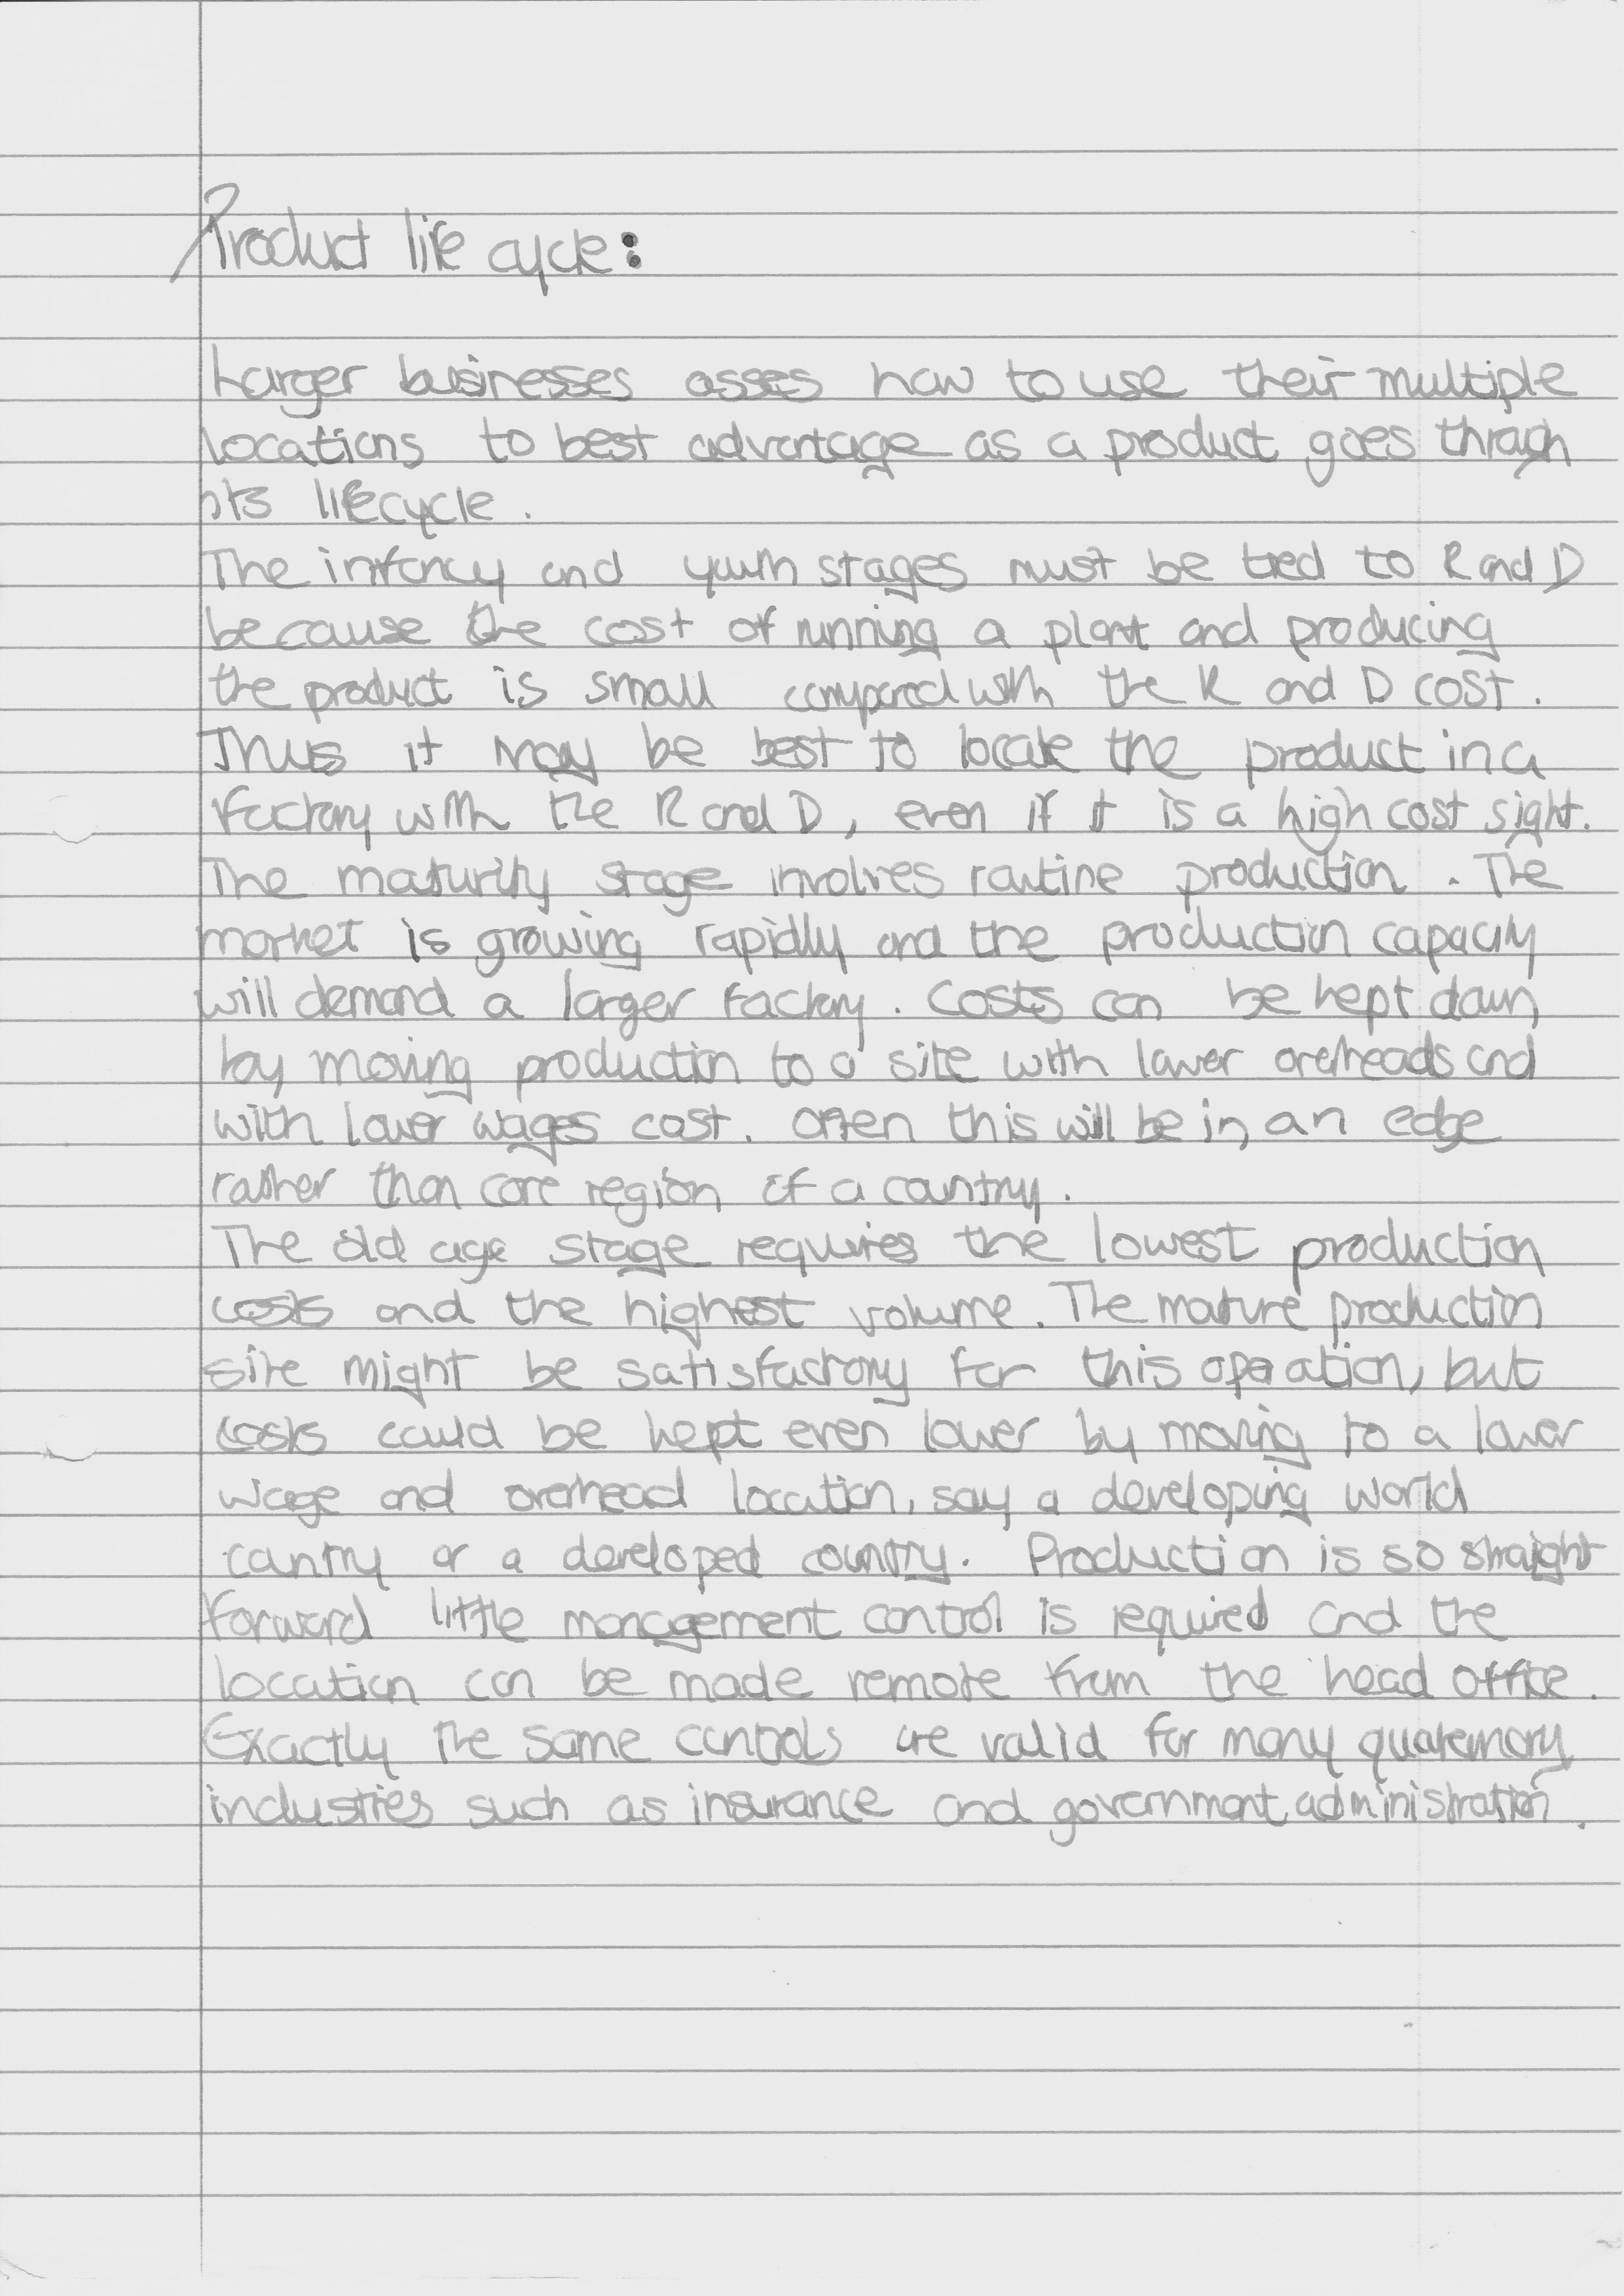 Product life cycle:
Larger businesses asses how to use their multiple
locations to best advantage as a product goes through
its lifecycle.
The infancy and youth stages must be tied to R and D
because the cost of running a plant and producing
the product is small compared with the R and D cost.
Thus it may be best to locate the product in a
factory with the R and D, even if it is a high cost sight.
The maturity stage involves routine production. The
market is growing rapidly and the production capacity
will demand a larger factory. Costs can be kept down
by moving production to a site with lower overheads and
with lower wages cost. Often this will be in an edge
rather than core region of a country.
The old age stage requires the lowest production
costs and the highest volume. The mature production
site might be satisfactory for this operation, but
costs could be kept even lower by moving to a lower
wage and overhead location, say a developing world
country or a developed country. Production is so straight
forward little management control is required and the
location can be made remote from the head office.
Exactly the same controls are valid for many quaternary
industries such as insurance and government administration.